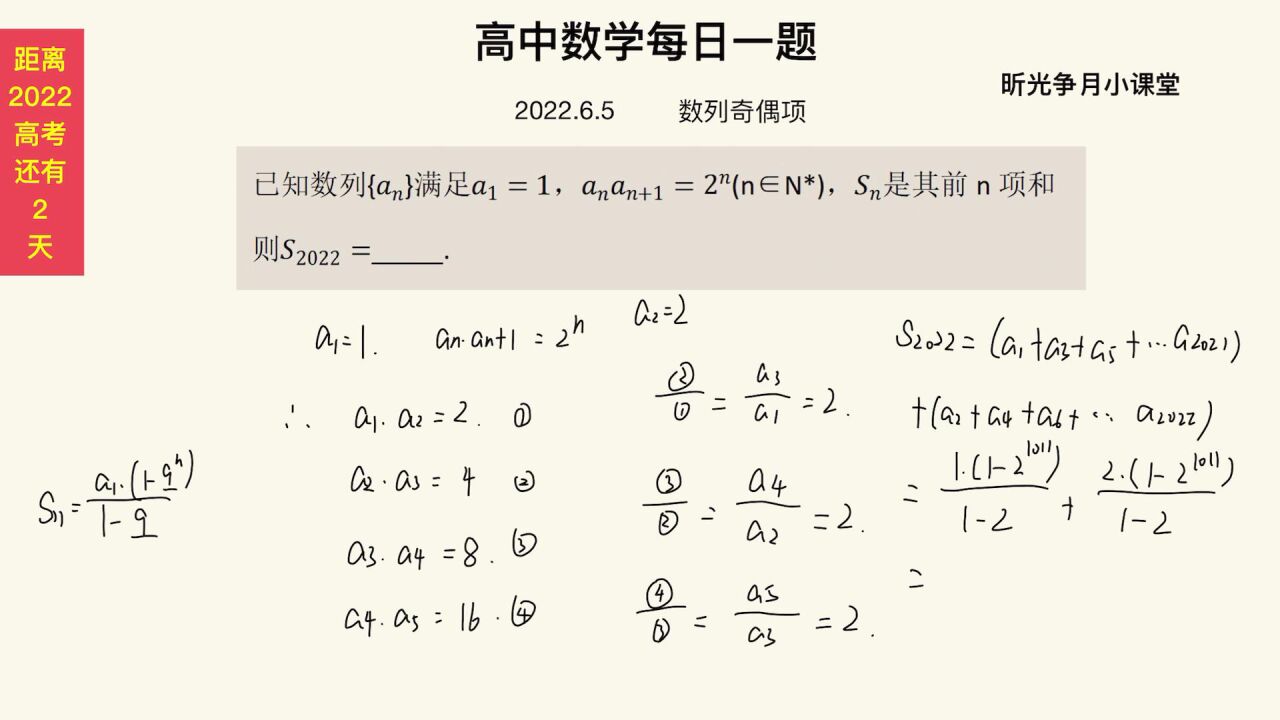 距离
2022
高考
还有
2
天
高中数学每日一题
昕光争月小课堂
2022.6.5 数列奇偶项
已知数列{aₙ}满足a₁ = 1，aₙaₙ₊₁ = 2ⁿ(n∈N*)，Sₙ是其前 n 项和
则S₂₀₂₂ =_____.
a₁=1. an·an+1 = 2ⁿ
∴ a₁·a₂ = 2. ①
a₂·a₃ = 4 ②
a₃·a₄ = 8. ③
a₄·a₅ = 16. ④
Sₙ = a₁·(1-qⁿ) / 1-q
a₂=2
②/① = a₃/a₁ = 2.
③/② = a₄/a₂ = 2.
④/③ = a₅/a₃ = 2.
S₂₀₂₂ = (a₁+a₃+a₅+…a₂₀₂₁)
+(a₂+a₄+a₆+… a₂₀₂₂)
= 1·(1-2¹⁰¹¹) / 1-2 + 2·(1-2¹⁰¹¹) / 1-2
=